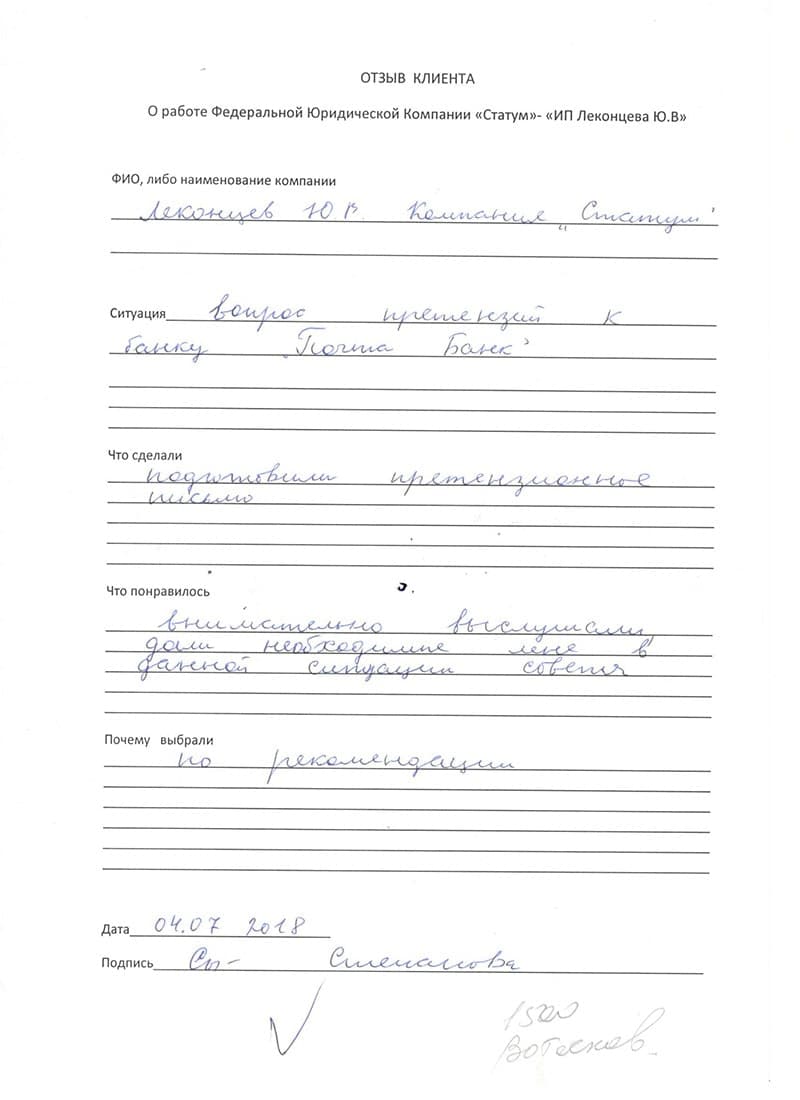 ОТЗЫВ КЛИЕНТА
О работе Федеральной Юридической Компании «Статум»- «ИП Леконцева Ю.В»
ФИО, либо наименование компании
Леконцев Ю В. Компания „Статум"
Ситуация вопрос претензий к
банку „Почта Банк"
Что сделали
подготовили претензионное
письмо
Что понравилось
внимательно выслушали,
дали необходимые мне в
данной ситуации советы
Почему выбрали
по рекомендации
Дата 04.07 2018
Подпись Степанова
1500